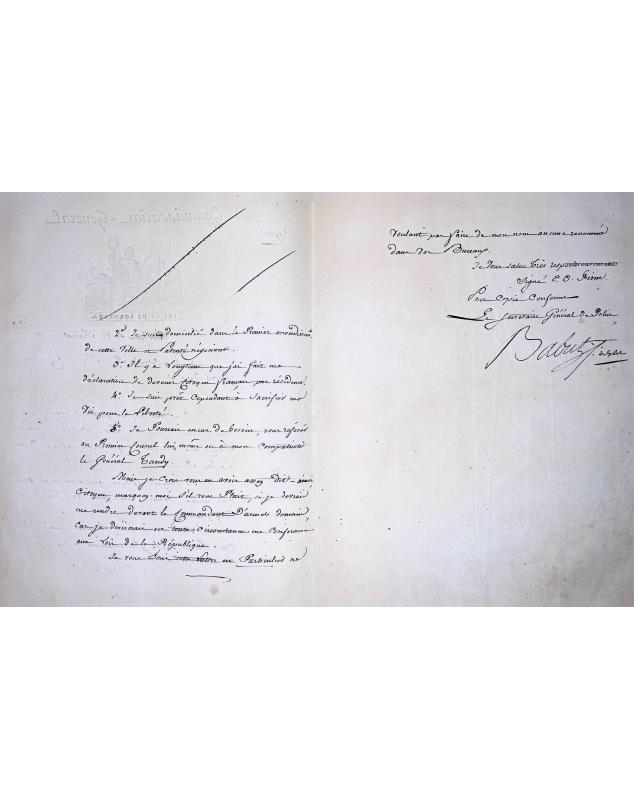 2º Je suis domicilié dans le Premier arrondissnt
de cette Ville et Patenté négociant.
3º Il y a longtems que j'ai fait ma
déclaration de devenir Citoyen français par résidence.
4º Je suis prêt Cependant à Sacrifier ma
Vie pour la Liberté.
5º Je Pourrais en cas de besoin, vous referer
au Premier Consul lui même ou à mon Compatriote
le Général Tandy.
Mais je Crois vous en avoir assez dit ainsi
Citoyen, marquez moi S'il vous Plait, si je devrais
me rendre devant le Commandant D'armes demain
Car je désirerais en toute Circonstance me Conformer
aux Lois de la République.
Je vous Ecris cette Lettre en Particulier ne
Voulant pas faire de mon nom aucune renommée
dans vos Bureaux.
Je Vous salue très respectueusement
Signé C. O.
Pour Copie Conforme
Le Secretaire Général de Police